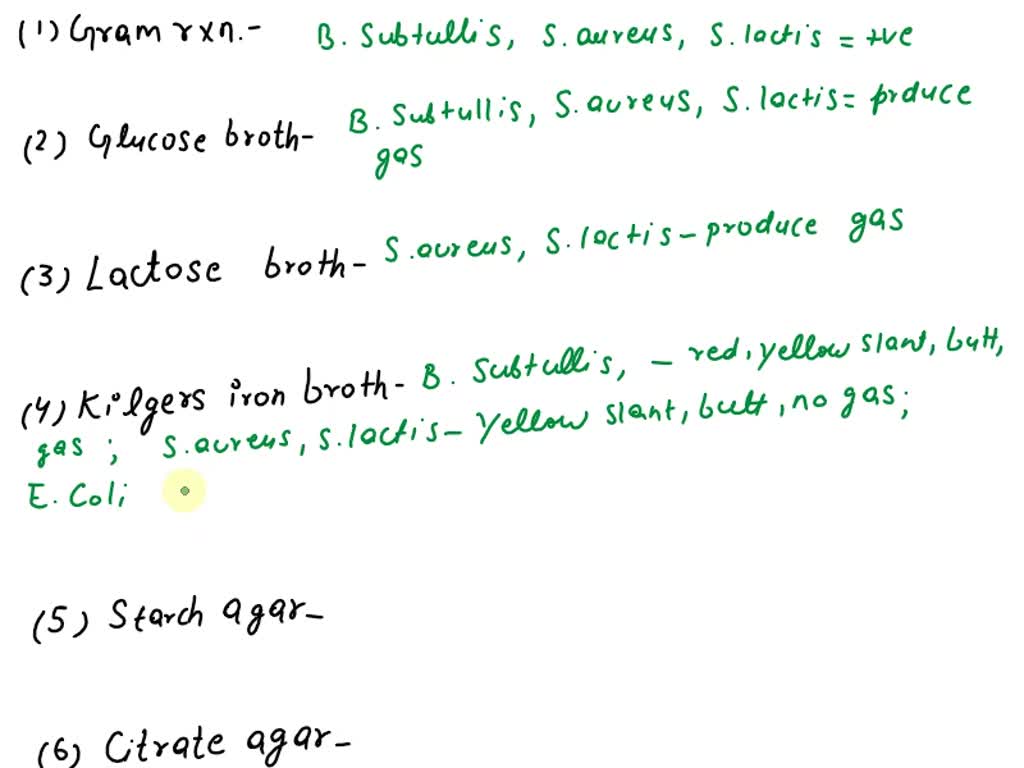 (1) Gram rxn.- B. Subtullis, S. aureus, S. lactis = +ve
(2) Glucose broth- B. Subtullis, S. aureus, S. lactis = prduce
gas
(3) Lactose broth- S. aureus, S. lactis - produce gas
(4) Kilgers iron broth- B. Subtullis, - red, yellow slant, butt,
gas ; S. aureus, S. lactis - Yellow slant, butt, no gas;
E. Coli
(5) Starch agar-
(6) Citrate agar-